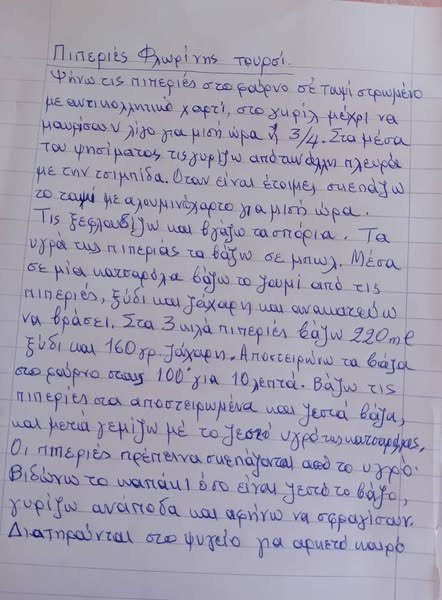 Πιπεριές Φλωρίνης τουρσί.
Ψήνω τις πιπεριές στο φούρνο σέ ταψί στρωμένο
με αντικολλητικό χαρτί, στο γκρίλ μέχρι να
μαυρίσουν λίγο για μισή ώρα ή 3/4. Στα μέσα
του ψησίματος τις γυρίζω από την άλλη πλευρά
με την τσιμπίδα. Οταν είναι έτοιμες σκεπάζω
το ταψί με αλουμινόχαρτο για μισή ώρα.
Τις ξεφλουδίζω και βγάζω τα σπόρια. Τα
υγρά της πιπεριάς τα βάζω σε μπωλ. Μέσα
σε μία κατσαρόλα βάζω το ζουμί από τις
πιπεριές, ξύδι και ζάχαρη και ανακατεύω
να βράσει. Στα 3 κιλά πιπεριές βάζω 220ml
ξύδι και 160 γρ. ζάχαρη. Αποστειρώνω τα βάζα
στο φούρνο στους 100° για 10 λεπτά. Βάζω τις
πιπεριές στα αποστειρωμένα και ζεστά βάζα,
και μετά γεμίζω μέ το ζεστό υγρό της κατσαρόλας.
Οι πιπεριές πρέπει να σκεπάζονται από το υγρό.
Βιδώνω το καπάκι όσο είναι ζεστό το βάζο,
γυρίζω ανάποδα και αφήνω να σφραγίσουν.
Διατηρούνται στο ψυγείο για αρκετό καιρό